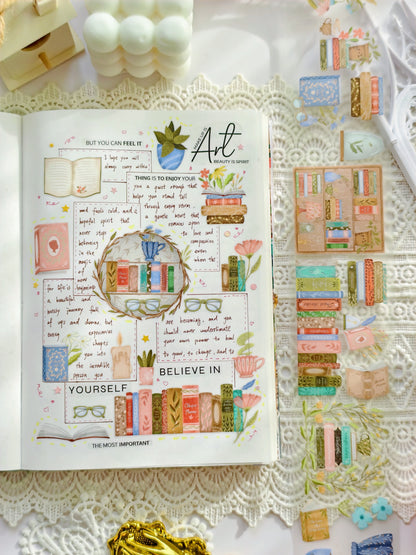 BUT YOU CAN FEEL IT
Art
BEAUTY IS SPIRIT
I hope you will
always carry within
THING IS TO ENJOY YOUR
you a quiet strength that
helps you stand tall
through every storm,
a gentle heart that
remains open
to love and
compassion
even when
the
and feels cold, and a
hopeful spirit that
never stops
believing
in the
magic
for life is
a beautiful and
messy journey full
of ups and downs, but
every experience
shapes
you into
the incredible
person you
are becoming, and you
should never underestimate
your own power to heal
to grow, to change, and to
BELIEVE IN
YOURSELF
THE MOST IMPORTANT